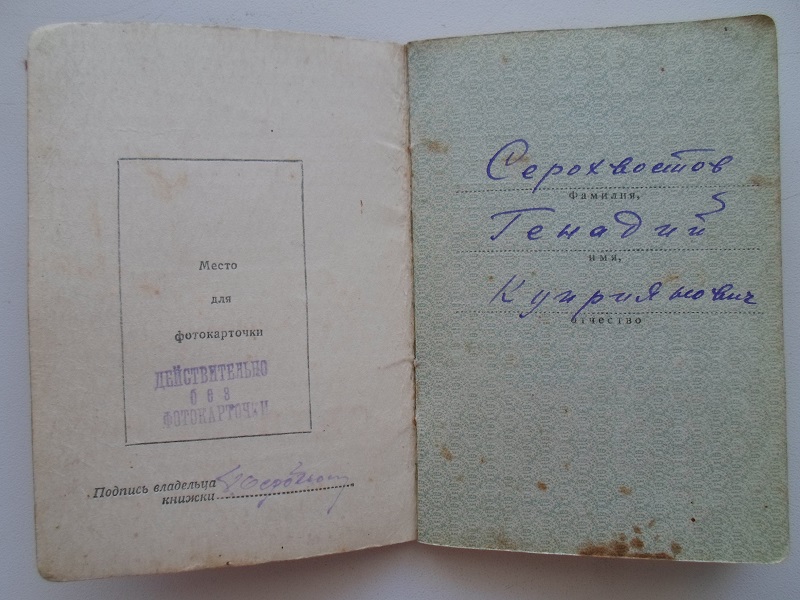 Место
для
фотокарточки
ДЕЙСТВИТЕЛЬНО
без
ФОТОКАРТОЧКИ
Подпись владельца
книжки
Серохвостов
фамилия,
Генадий
имя,
Куприянович
отчество